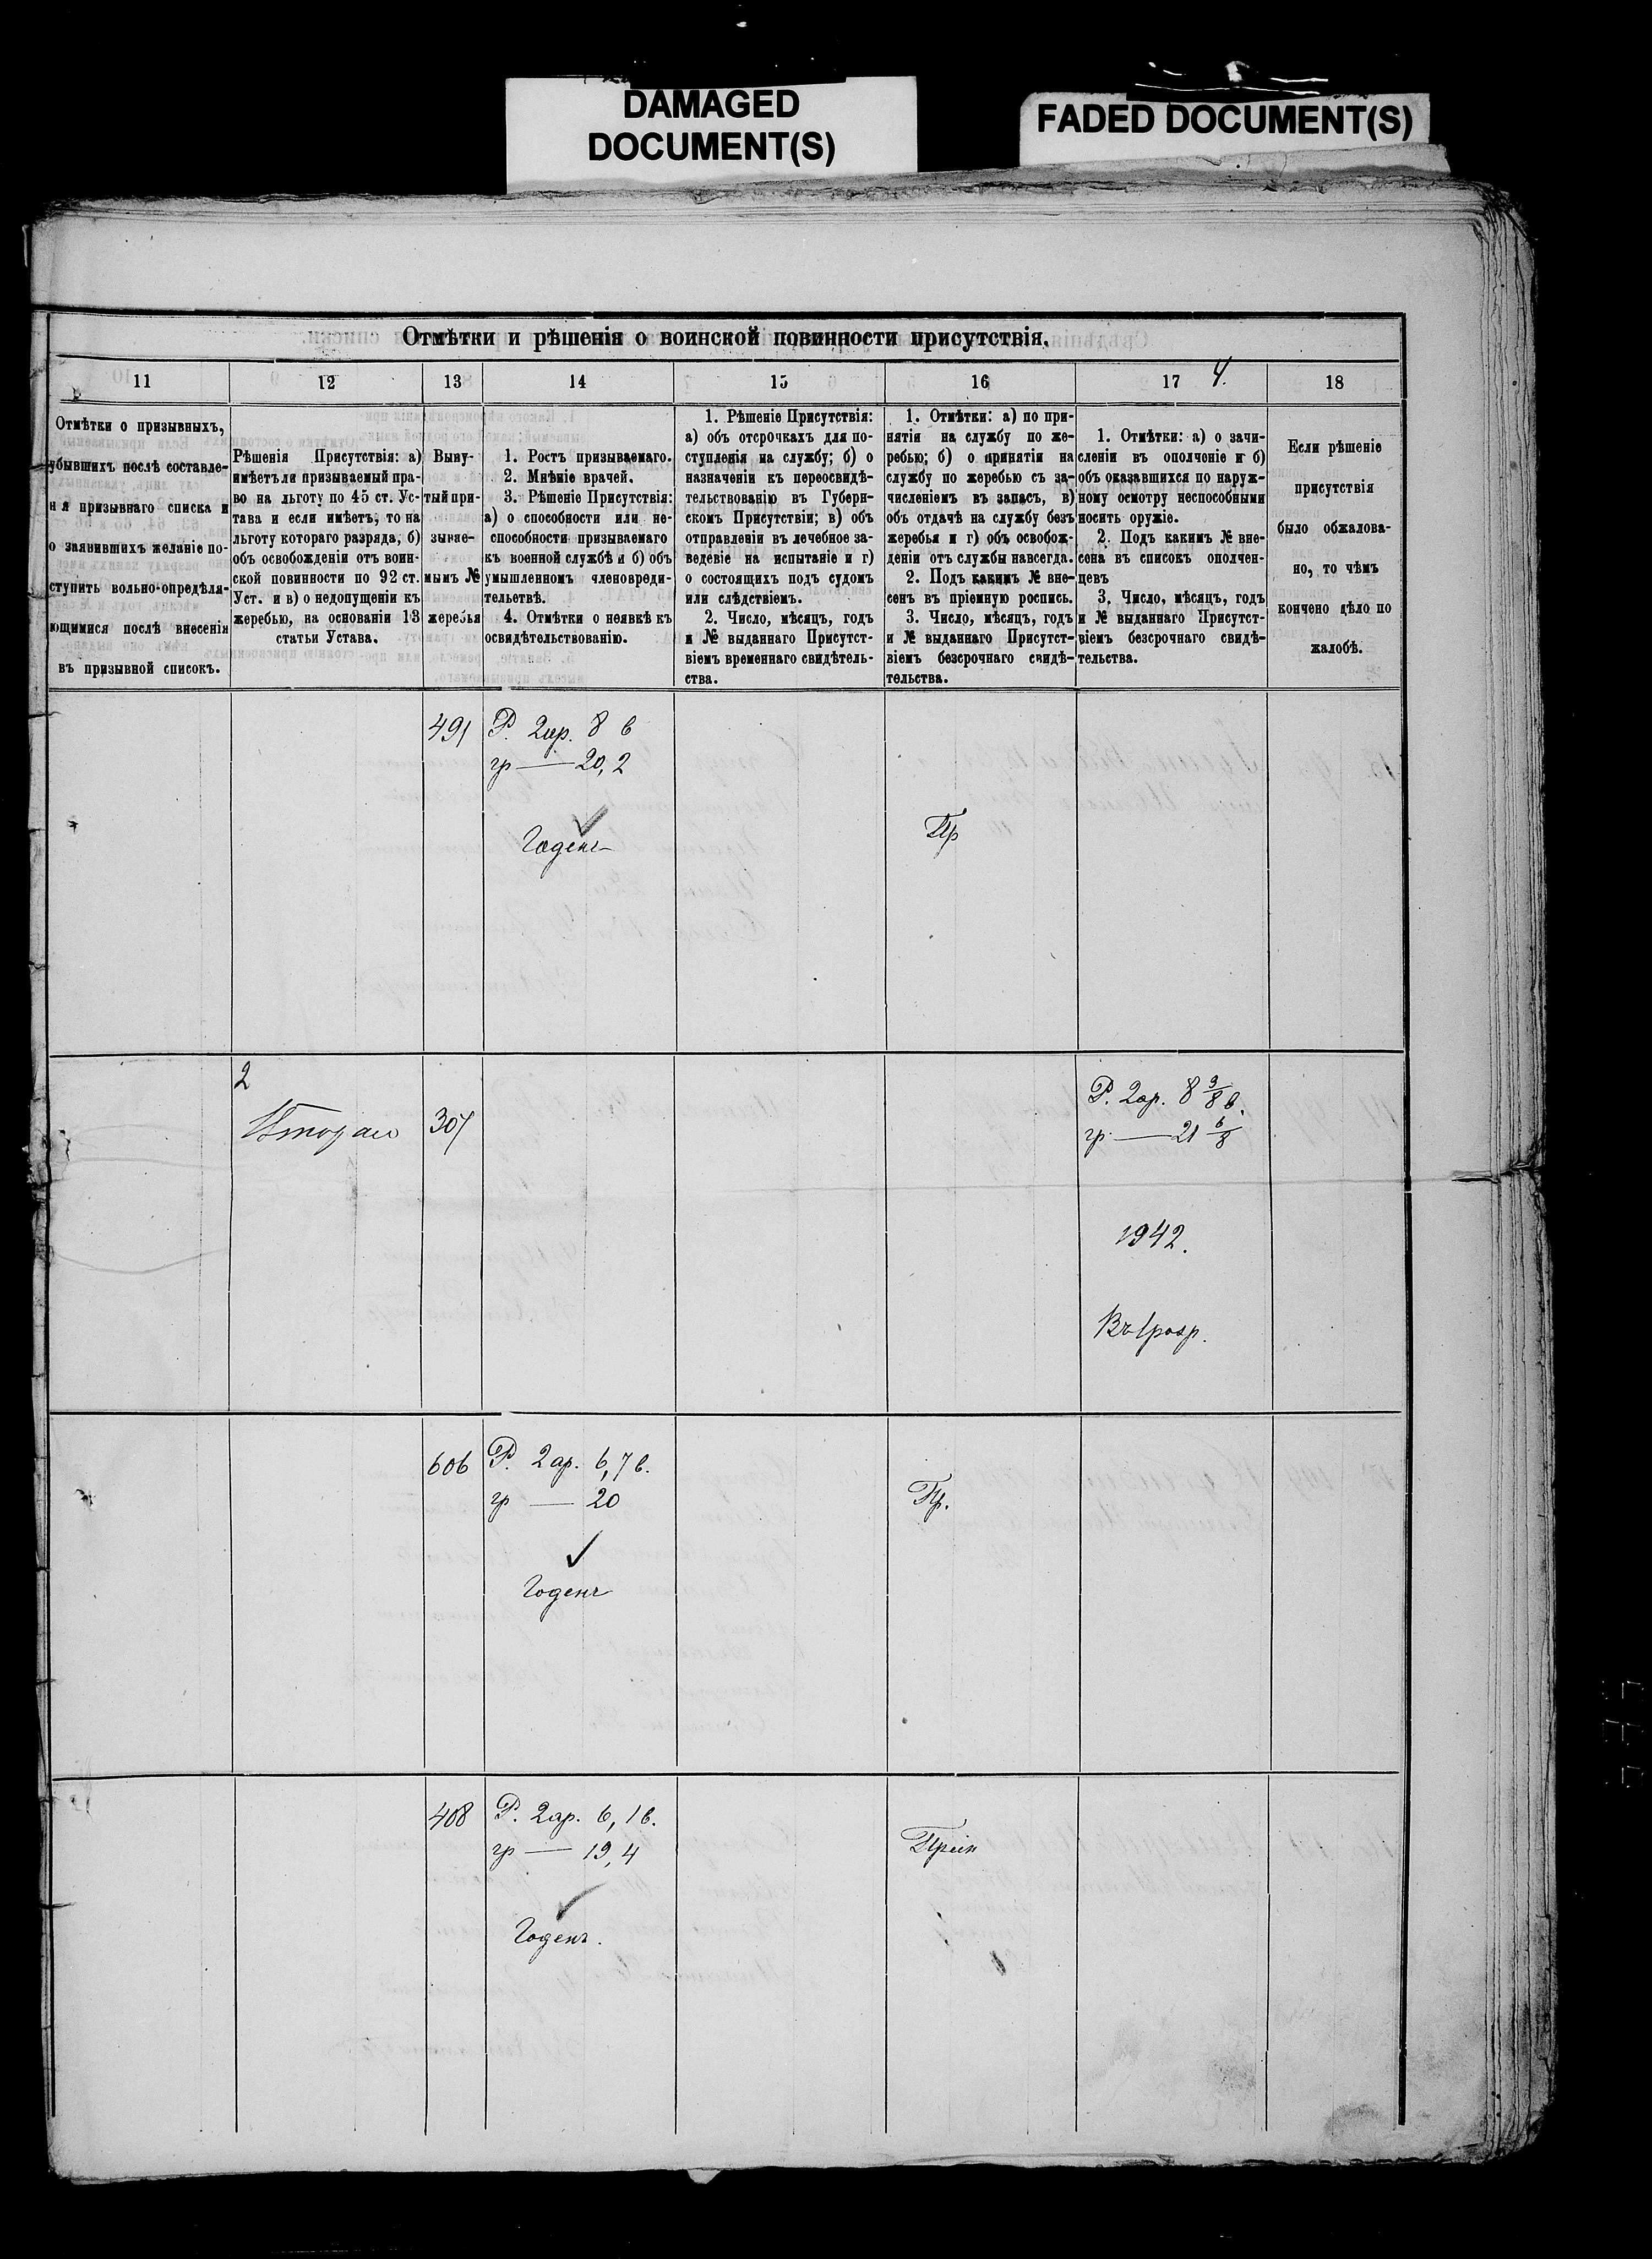 DAMAGED
DOCUMENT(S)
FADED DOCUMENT(S)
Отмѣтки и рѣшенія о воинской повинности присутствія.
11
12
13
14
15
16
17
4.
18
Отмѣтки о призывныхъ,
убывшихъ послѣ составле-
н я призывнаго списка и
о заявившихъ желаніе по-
ступить вольно-опредѣля-
ющимися послѣ внесенія
въ призывной списокъ.
Рѣшенія Присутствія: а)
имѣетъ ли призываемый пра-
во на льготу по 45 ст. Ус-
тава и если имѣетъ, то на
льготу котораго разряда, б)
объ освобожденіи отъ воин-
ской повинности по 92 ст.
Уст. и в) о недопущеніи къ
жеребью, на основаніи 13
статьи Устава.
Выну-
тый при-
зывае-
мымъ №
жеребья
1. Ростъ призываемаго.
2. Мнѣніе врачей.
3. Рѣшеніе Присутствія:
а) о способности или не-
способности призываемаго
къ военной службѣ и б) объ
умышленномъ членовреди-
тельствѣ.
4. Отмѣтки о неявкѣ къ
освидѣтельствованію.
1. Рѣшеніе Присутствія:
а) объ отсрочкахъ для по-
ступленія на службу; б) о
назначеніи къ переосвидѣ-
тельствованію въ Губерн-
скомъ Присутствіи; в) объ
отправленіи въ лечебное за-
веденіе на испытаніе и г)
о состоящихъ подъ судомъ
или слѣдствіемъ.
2. Число, мѣсяцъ, годъ
и № выданнаго Присутст-
віемъ временнаго свидѣтель-
ства.
1. Отмѣтки: а) по при-
нятіи на службу по же-
ребью; б) о принятіи на
службу по жеребью съ за-
численіемъ въ запасъ, в)
объ отдачѣ на службу безъ
жеребья и г) объ освобож-
деніи отъ службы навсегда.
2. Подъ какимъ № вне-
сенъ въ пріемную роспись.
3. Число, мѣсяцъ, годъ
и № выданнаго Присутст-
віемъ безсрочнаго свидѣ-
тельства.
1. Отмѣтки: а) о зачи-
сленіи въ ополченіе и б)
объ оказавшихся по наруж-
ному осмотру неспособными
носить оружіе.
2. Подъ какимъ № вне-
сена въ списокъ ополчен-
цевъ
3. Число, мѣсяцъ, годъ
и № выданнаго Присутст-
віемъ безсрочнаго свидѣ-
тельства.
Если рѣшеніе
присутствія
было обжалова-
но, то чѣмъ
кончено дѣло по
жалобѣ.
491
Р. 2ар. 8 в
гр — 20,2
Годенъ
Пр
2
307
Р. 2ар. 8 3/8 в.
гр — 21 6/8
1942.
Въ 1 разр.
606
Р. 2ар. 6,7 в.
гр — 20
Годенъ
Пр.
408
Р. 2ар. 6,1 в.
гр — 19,4
Годенъ.